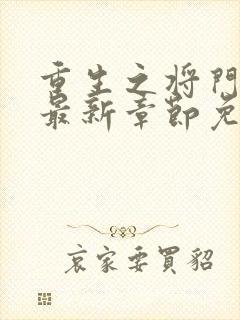 重生之将門
最新章節免
哀家要買貂